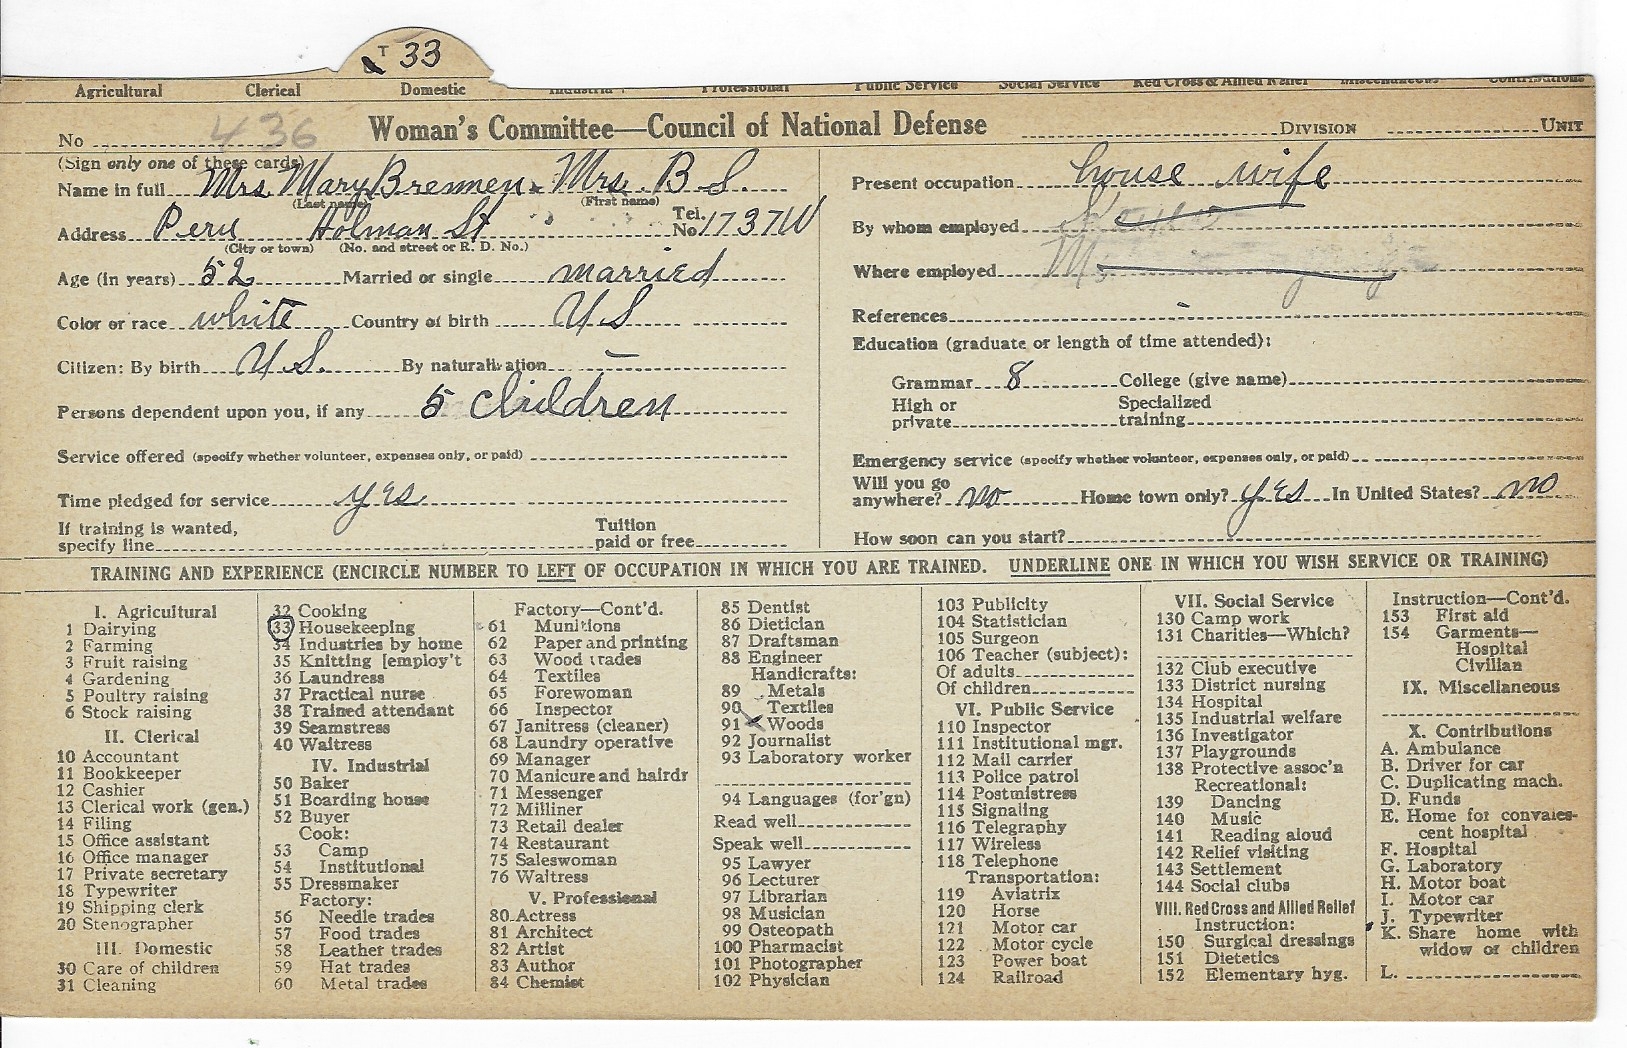 T 33
Agricultural Clerical Domestic Industrial Professional Public Service Social Service Red Cross & Allied Relief Miscellaneous Contributions
No 436 Woman's Committee—Council of National Defense DIVISION UNIT
(Sign only one of these cards)
Name in full Mrs. Mary Brennen Mrs. B S.
(Last name) (First name)
Address Peru Holman St Tel. No 1737W
(City or town) (No. and street or R. D. No.)
Age (in years) 52 Married or single married
Color or race white Country of birth U S
Citizen: By birth U.S. By naturalization —
Persons dependent upon you, if any 5 children
Service offered (specify whether volunteer, expenses only, or paid)
Time pledged for service yes
If training is wanted,
specify line Tuition paid or free
Present occupation house wife
By whom employed
Where employed
References -
Education (graduate or length of time attended):
Grammar 8 College (give name)
High or private Specialized training
Emergency service (specify whether volunteer, expenses only, or paid)
Will you go anywhere? no Home town only? yes In United States? no
How soon can you start?
TRAINING AND EXPERIENCE (ENCIRCLE NUMBER TO LEFT OF OCCUPATION IN WHICH YOU ARE TRAINED. UNDERLINE ONE IN WHICH YOU WISH SERVICE OR TRAINING)
I. Agricultural
1 Dairying
2 Farming
3 Fruit raising
4 Gardening
5 Poultry raising
6 Stock raising
II. Clerical
10 Accountant
11 Bookkeeper
12 Cashier
13 Clerical work (gen.)
14 Filing
15 Office assistant
16 Office manager
17 Private secretary
18 Typewriter
19 Shipping clerk
20 Stenographer
III. Domestic
30 Care of children
31 Cleaning
32 Cooking
33 Housekeeping
34 Industries by home
35 Knitting [employ't
36 Laundress
37 Practical nurse
38 Trained attendant
39 Seamstress
40 Waitress
IV. Industrial
50 Baker
51 Boarding house
52 Buyer
Cook:
53 Camp
54 Institutional
55 Dressmaker
Factory:
56 Needle trades
57 Food trades
58 Leather trades
59 Hat trades
60 Metal trades
Factory—Cont'd.
61 Munitions
62 Paper and printing
63 Wood trades
64 Textiles
65 Forewoman
66 Inspector
67 Janitress (cleaner)
68 Laundry operative
69 Manager
70 Manicure and hairdr
71 Messenger
72 Milliner
73 Retail dealer
74 Restaurant
75 Saleswoman
76 Waitress
V. Professional
80 Actress
81 Architect
82 Artist
83 Author
84 Chemist
85 Dentist
86 Dietician
87 Draftsman
88 Engineer
Handicrafts:
89 Metals
90 Textiles
91 Woods
92 Journalist
93 Laboratory worker
94 Languages (for'gn)
Read well
Speak well
95 Lawyer
96 Lecturer
97 Librarian
98 Musician
99 Osteopath
100 Pharmacist
101 Photographer
102 Physician
103 Publicity
104 Statistician
105 Surgeon
106 Teacher (subject):
Of adults
Of children
VI. Public Service
110 Inspector
111 Institutional mgr.
112 Mail carrier
113 Police patrol
114 Postmistress
115 Signaling
116 Telegraphy
117 Wireless
118 Telephone
Transportation:
119 Aviatrix
120 Horse
121 Motor car
122 Motor cycle
123 Power boat
124 Railroad
VII. Social Service
130 Camp work
131 Charities—Which?
132 Club executive
133 District nursing
134 Hospital
135 Industrial welfare
136 Investigator
137 Playgrounds
138 Protective assoc'n
Recreational:
139 Dancing
140 Music
141 Reading aloud
142 Relief visiting
143 Settlement
144 Social clubs
VIII. Red Cross and Allied Relief
Instruction:
150 Surgical dressings
151 Dietetics
152 Elementary hyg.
Instruction—Cont'd.
153 First aid
154 Garments—
Hospital
Civilian
IX. Miscellaneous
X. Contributions
A. Ambulance
B. Driver for car
C. Duplicating mach.
D. Funds
E. Home for convales-
cent hospital
F. Hospital
G. Laboratory
H. Motor boat
I. Motor car
J. Typewriter
K. Share home with
widow or children
L.